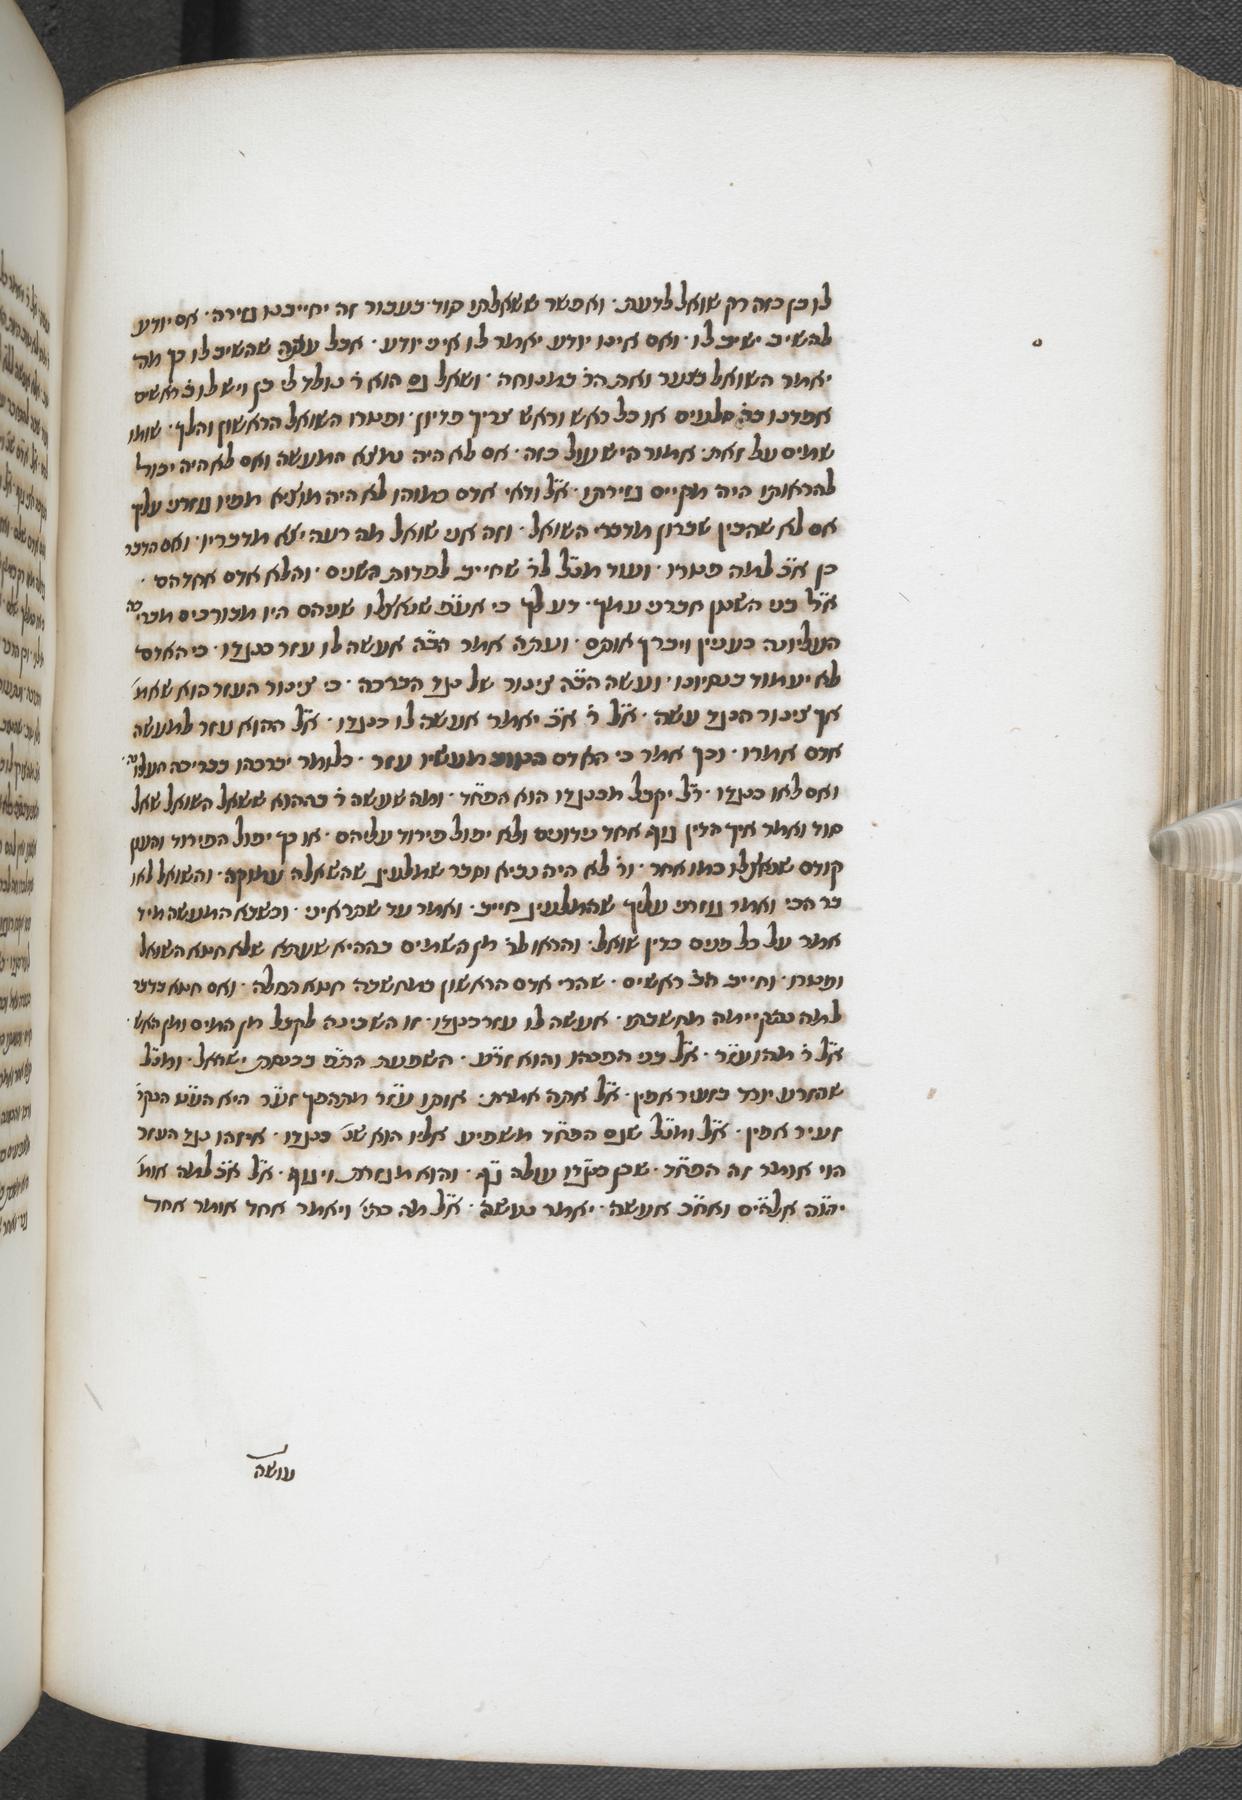 לו בן כזה רק שואל לדעת · ואפשר ששאלתו קוד · בעבור זה יחייבנו גזירה · אם יודע
להשיב ישיב לו · ואם אינו יודע יאמר לו איני יודע · אבל שהשיב לו כך מה
יאמר השואל בצער ואת הר׳ במנוחה · ושאל גם הוא ר׳ נולד לי בן ויש לו ב׳ ראשים
או כל ראש וראש צריך פדיון · השואל הראשון והלך · שותו
שתים על זאת · אמור היש עול כזה · אם לא היה נמצא המעשה ואם לא היה יכול
להראותו היה מקיים גזירתו · א״ל ודאי אדם כמוהו לא היה מוציא מפיו גוזרני עליך
אם לא שהבין שברון מדברי השואל · וזה אני שואל מה רעה יצא מדבריו · ואם הדבר
כן א״כ למה · ועוד מנ״ל לר׳ שחייב לפדות השנים · והלא אדם אחד הם ·
א״ל בני השטן חברני עמך · דע לך כי אע״פ שנאצלו שניהם היו מבורכים מברכה
העליונה כענין ויברך אותם · ועתה אמר הב״ה אעשה לו עזר כנגדו · כי האדם
לא יעמוד בנסיונו · ועשה הב״ה צינור של נגד הברכה · כי צינור העזר הוא שאמ׳
אך צינור הנגד עשה · א״ל ר׳ א״כ יאמר אעשה לו כנגדו · א״ל ההוא עזר למעשה
אדם אמרו · וכך אמר כי האדם מעשיו עזר · כלומר יברכהו בבריכה העליונה ·
ואם לאו כנגדו · ר״ל יקבל מכנגדו הוא הפח״ד · ומה שעשה ר׳ בההוא ששאל השואל שאל
סוד ואמר איך הדין גוף אחד פרודים ולא יפול פירוד עליהם · או כך יפול הפירוד והען
קודם שנאצלו כמו אחר · ור׳ לא היה נביא וסבר שמלעיג שהשאלה עמוקה · והשואל לאו
בר הכי ואמר גוזרני עליך שהמלעיג חייב · ואמר עד שהראיני · וכשבא המעשה מיד
אמר על כל פנים כדין שואל · והראו לר׳ מן השמים בההיא שעתא שלא חטא השואל
· וחייב חצ׳ ראשים · שהרי אדם הראשון במחשבה חטא תחלה · ואם חטא בדבר
למה נתקיימה מחשבתו · אעשה לו עזר כנגדו · זו השכינה לקבל מן המים ומן האש ·
א״ל ר׳ מהו עז״ר · א״ל בני הפכהו והוא זר״ע · השפעת הת״ת בכנסת ישראל · ומנ״ל
שהזרע יורד בזעיר אפין · א״ל אתה אמרת · אותו עז״ר מתהפך זע״ר היא הע״ט הנקר׳
זעיר אפין · א״ל ומנ״ל שגם הפח״ד משפיע אליו הוא שנ׳ כנגדו · איזהו נגד העזר
הוי אומר זה הפח״ד · שכן כנגד״ו עולה ג״ף · והוא מגזרת ויגוף · א״ל א״כ למה אומ׳
יהו״ה אלה״ים ואח״כ אעשה · יאמר נעשה · א״ל מה כתי׳ ויאמר אחד אומר אחד
עושה